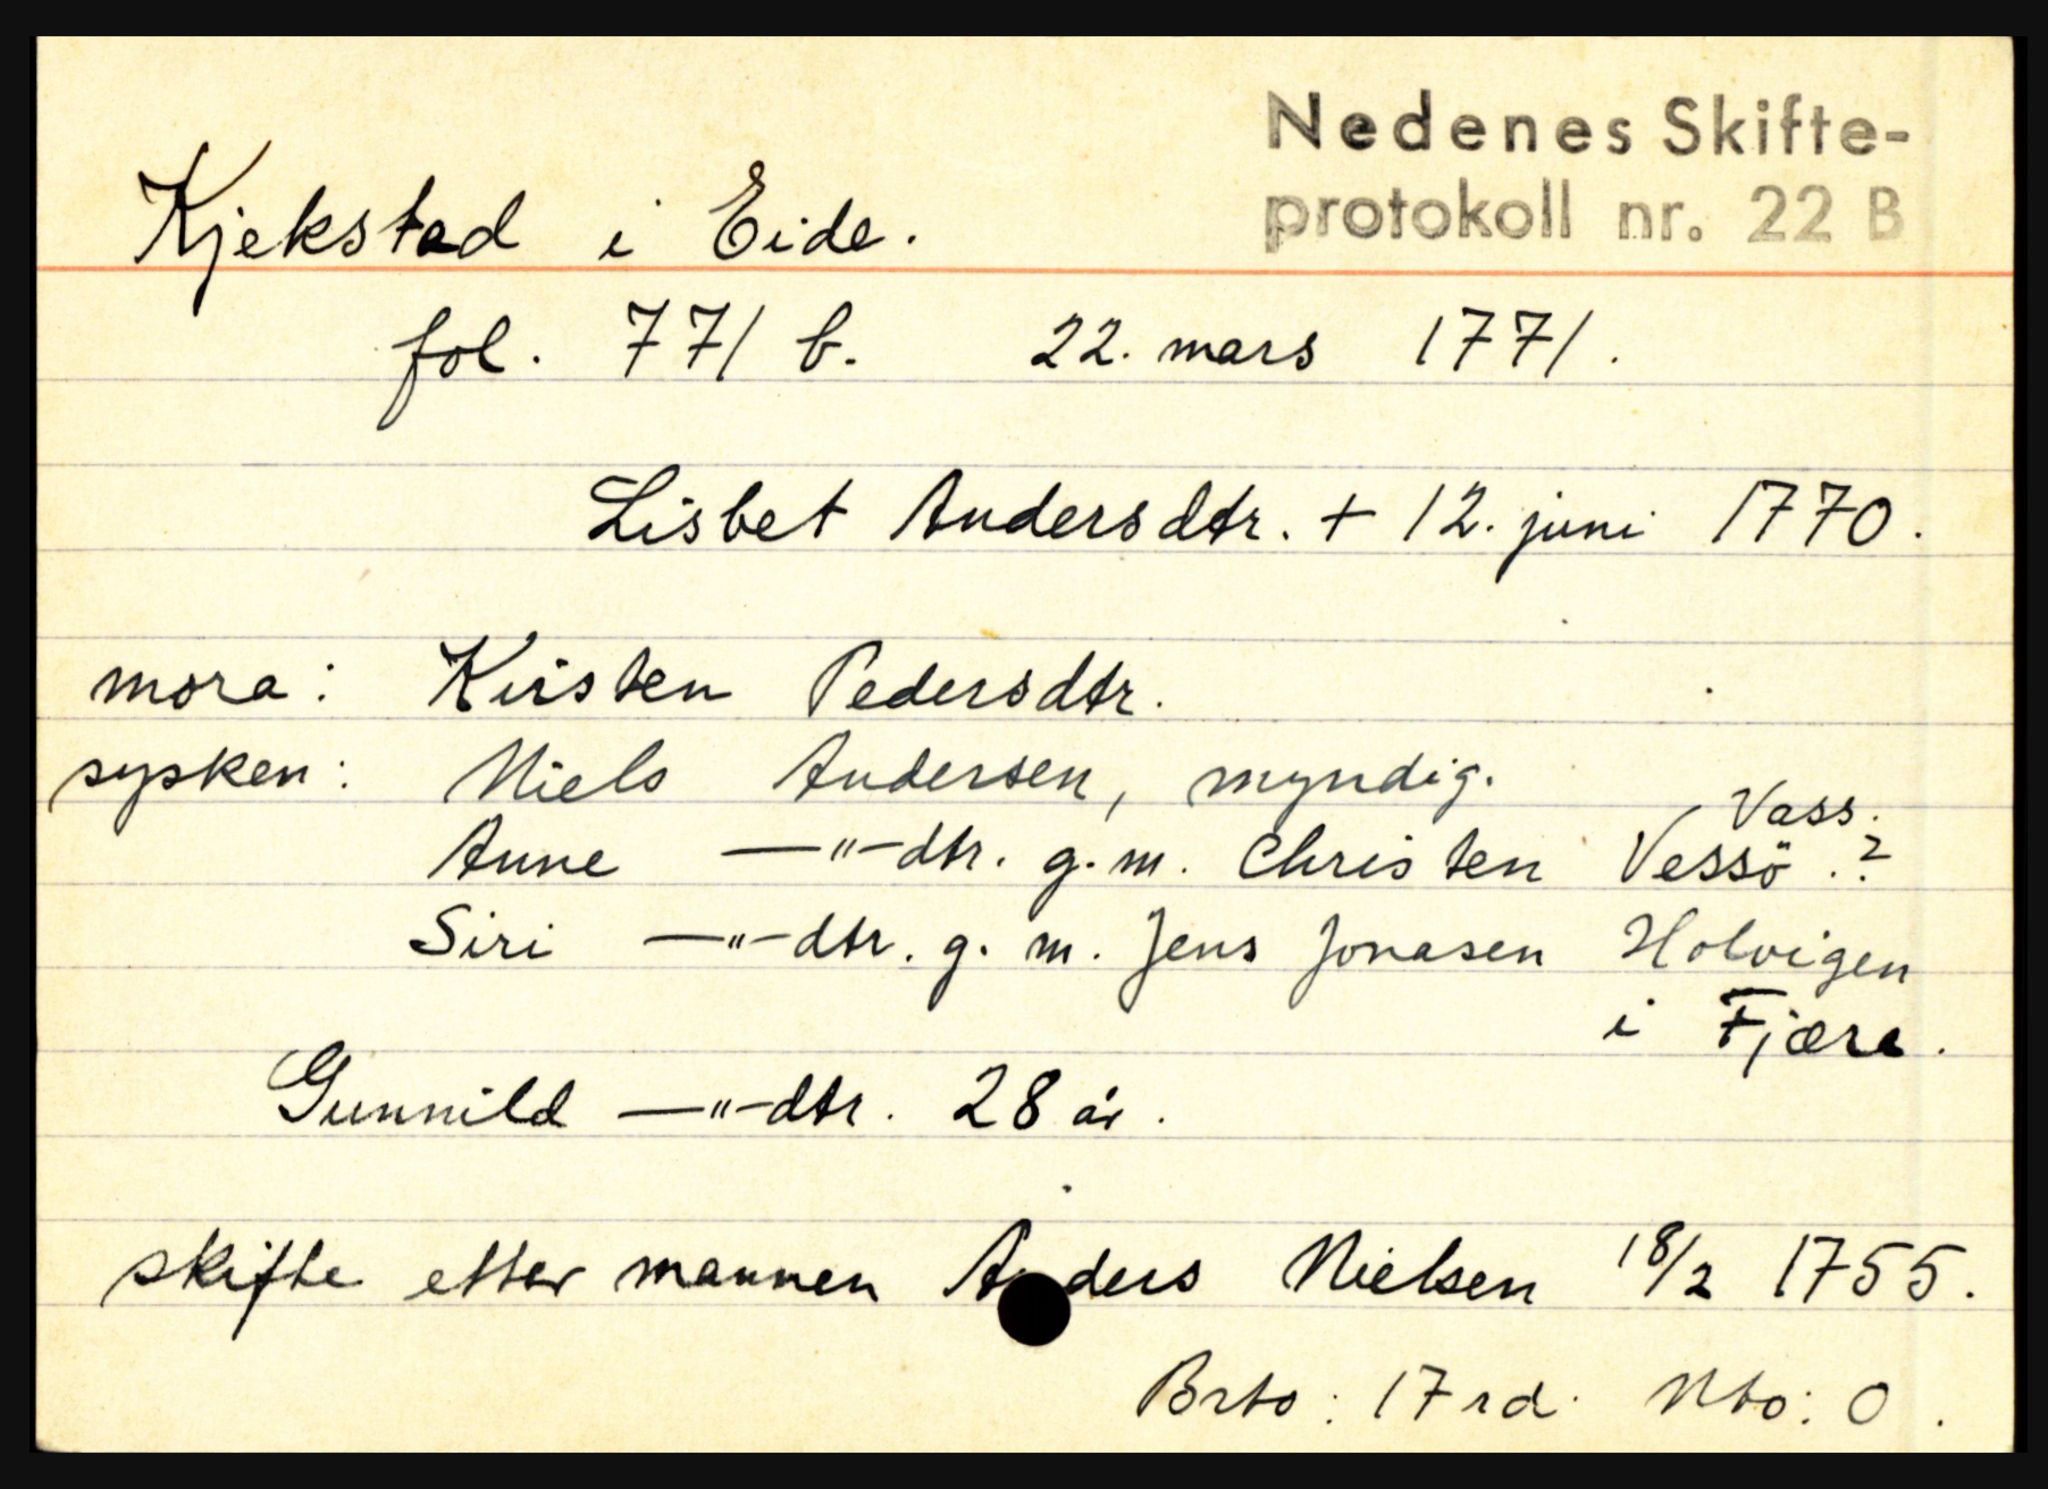 Nedenes Skifte-
protokoll nr. 22 B
Kjekstad i Eide.
fol. 771 b. 22. mars 1771.
Lisbet Andersdtr. + 12. juni 1770.
mora: Kirsten Pedersdtr.
sysken: Niels Andersen, myndig.
Vass.
Anne —"—dtr. g.m. Christen Vessö.?
Siri —"—dtr. g. m. Jens Jonasen Holvigen
i Fjære.
Gunnild —"—dtr. 28 år.
skifte etter mannen Anders Nielsen 18/2 1755.
Brto: 17 rd. Nto: 0.